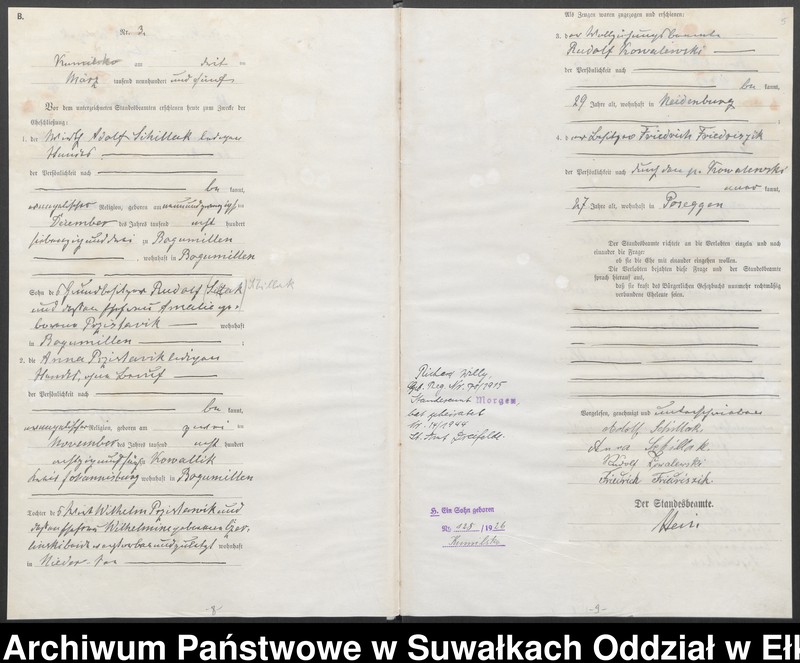 B.
Nr. 3.
Kumilsko am dritten
März tausend neunhundert und fünf
Vor dem unterzeichneten Standesbeamten erschienen heute zum Zweck der
Eheschließung:
1. der Wirth Adolf Schillak ledigen
Standes
der Persönlichkeit nach
be kannt,
evangelischer Religion, geboren am neunundzwanzigsten
Dezember des Jahres tausend acht hundert
siebenzig und drei in Bogumillen
, wohnhaft in Bogumillen
Sohn des Grundbesitzer Rudolf Schillak
und dessen Ehefrau Amalie ge-
borene wohnhaft
in Bogumillen ;
2. die Anna ledigen
Standes, ohne Beruf
der Persönlichkeit nach
be kannt,
evangelischer Religion, geboren am zweiten
November des Jahres tausend acht hundert
achtzig und Kowallik
Kreis Johannisburg wohnhaft in Bogumillen
Tochter des Wirt Wilhelm und
dessen Ehefrau Wilhelmine geborenen
beide verstorben und zuletzt wohnhaft
in
-8-
Als Zeugen waren zugezogen und erschienen:
3. der Vollziehungsbeamte
Rudolf Kowalewski
der Persönlichkeit nach
be kannt,
29 Jahre alt, wohnhaft in Neidenburg
;
4. der Besitzer Friedrich Friedriszik
der Persönlichkeit nach durch den p. Kowalewski
aner kannt,
27 Jahre alt, wohnhaft in Poseggen
Der Standesbeamte richtete an die Verlobten einzeln und nach
einander die Frage:
ob sie die Ehe mit einander eingehen wollen.
Die Verlobten bejahten diese Frage und der Standesbeamte
sprach hierauf aus,
daß sie kraft des Bürgerlichen Gesetzbuchs nunmehr rechtmäßig
verbundene Eheleute seien.
Richard Willy,
Geb. Reg. Nr. /1915
Standesamt Morgen,
hat geheiratet
Nr. 14/1944
St. Amt
H. Ein Sohn geboren
Nr. 128 / 1926
Kumilsko
Vorgelesen, genehmigt und unterschrieben
Adolf Schillak
Anna Schillak.
Rudolf Kowalewski
Friedrich Friedriszik.
Der Standesbeamte.
-9-
Archiwum Państwowe w Suwałkach Oddział w Eł